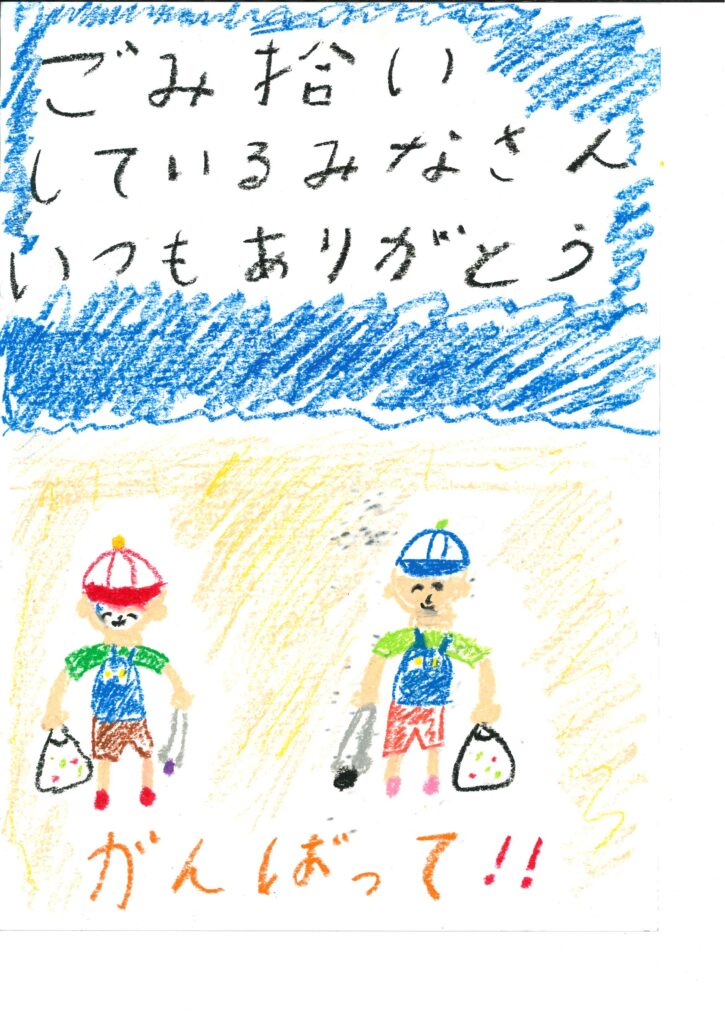 ごみ拾い
しているみなさん
いつもありがとう
がんばって!!